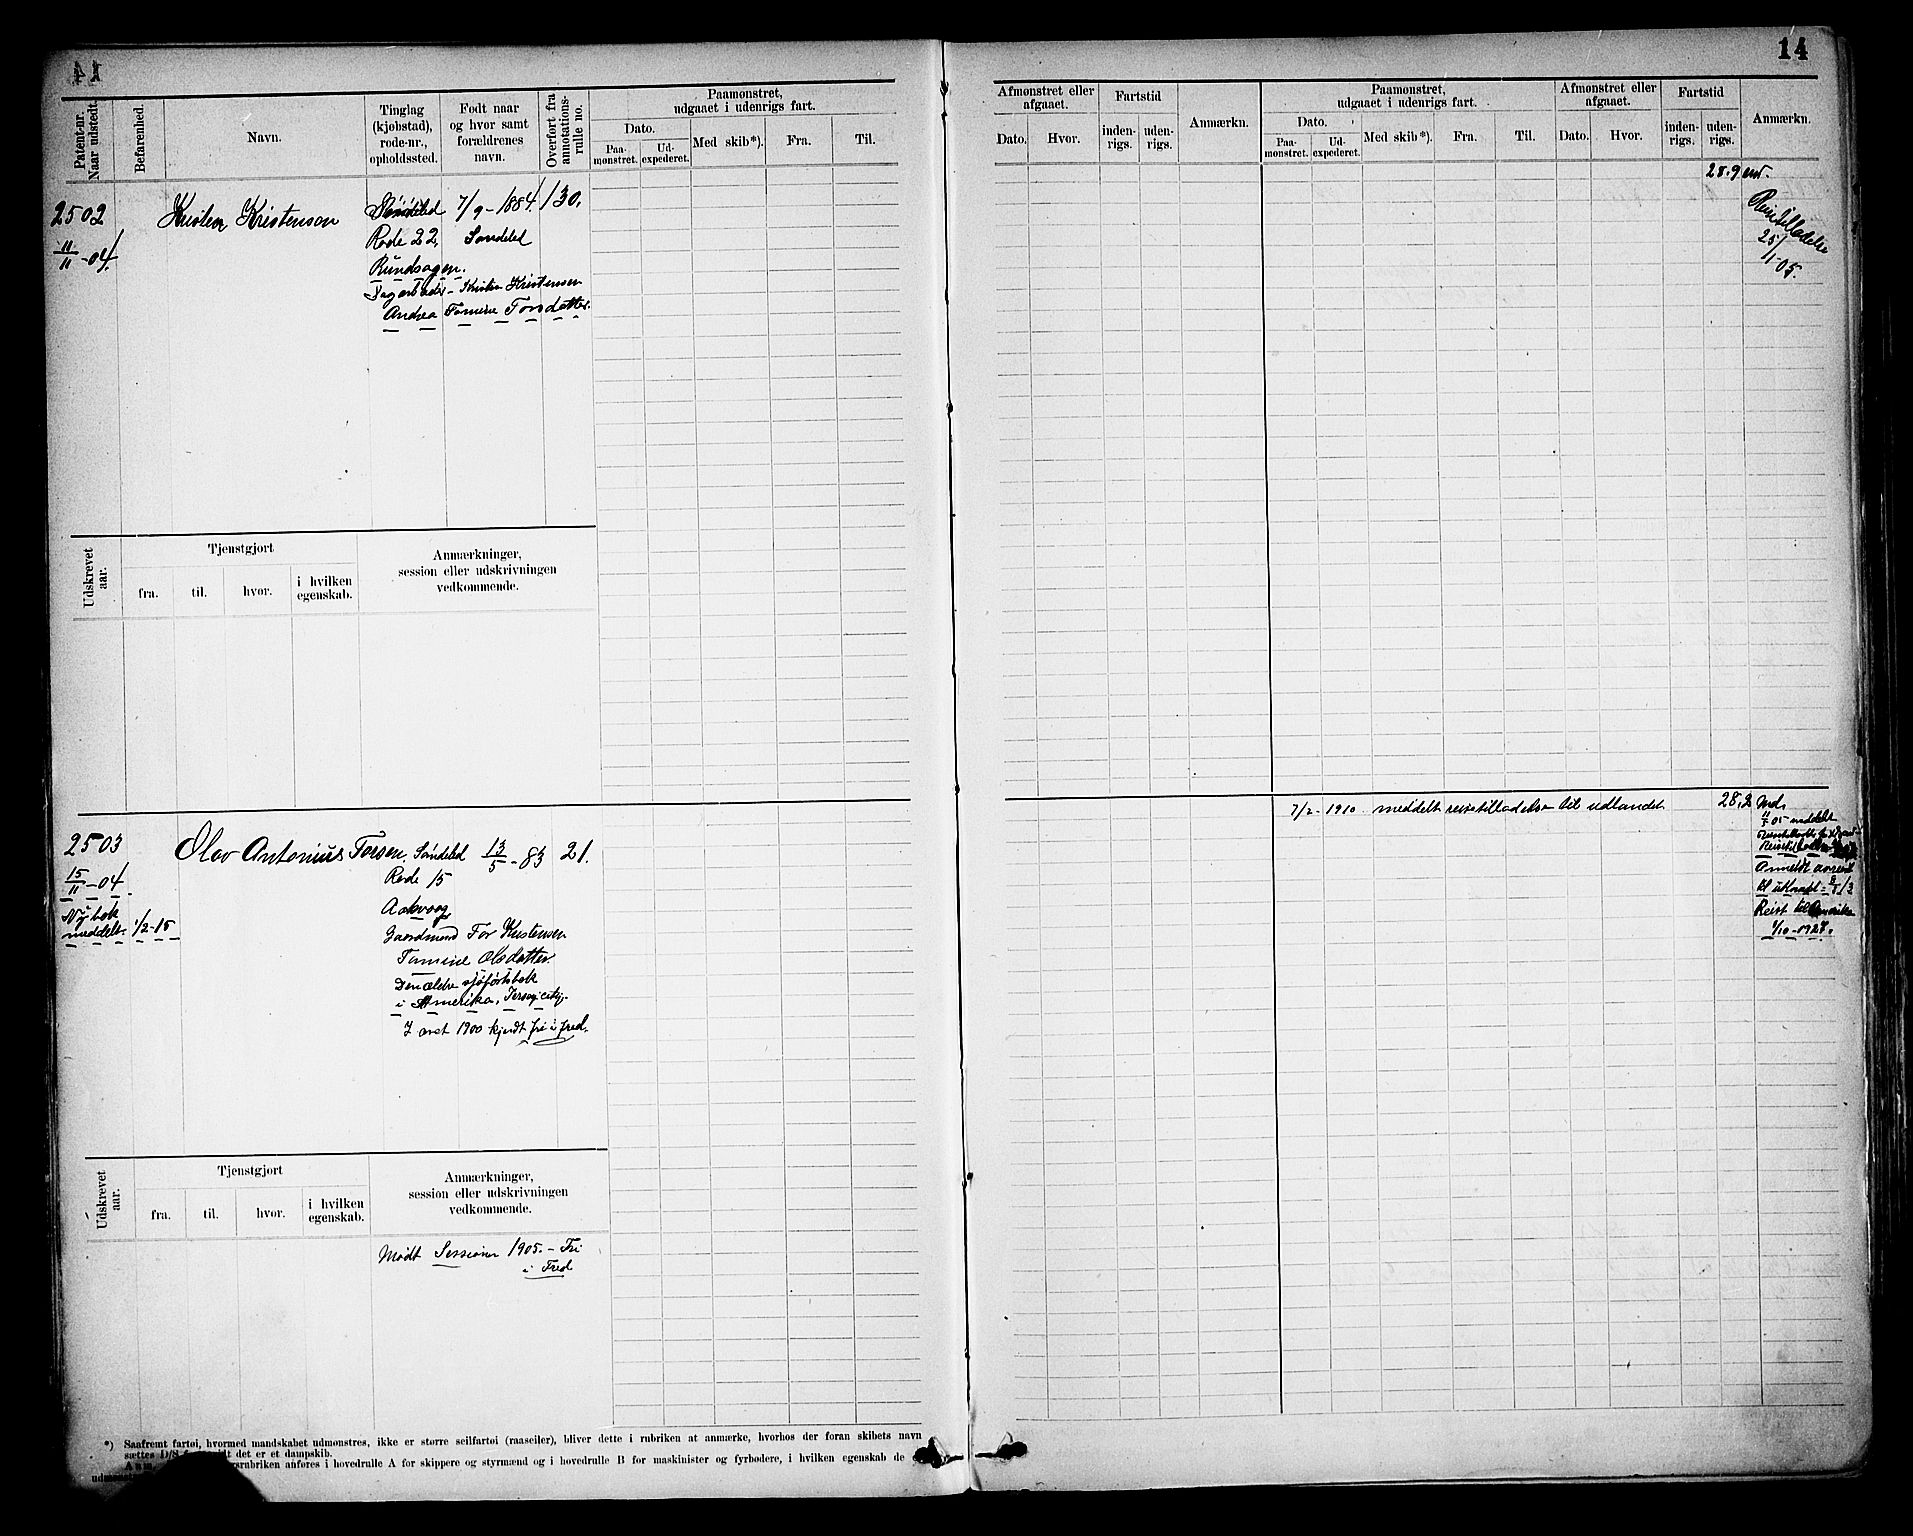 14
Patent-nr.
Naar udstedt.
Befarenhed.
Navn.
Tinglag
(kjøbstad),
rode-nr.,
opholdssted.
Født naar
og hvor samt
forældrenes
navn.
Overført fra
annotations-
rulle no.
Paamønstret,
udgaaet i udenrigs fart.
Dato.
Paa-
mønstret.
Ud-
expederet.
Med skib*).
Fra.
Til.
2502
11/11 -04.
Kristen Kristensen
Søndeled
7/9 - 1884.
130.
Rode 22,
Søndeled
Rundsagen.
Kristen Kristensen
Andrea Tomine Torsdatter.
Udskrevet
aar.
Tjenstgjort
fra.
til.
hvor.
i hvilken
egenskab.
Anmærkninger,
session eller udskrivningen
vedkommende.
2503
15/11 -04.
Ny bok
meddelt. 1/2-15
Olav Antonius Torsen,
Søndeled
13/5 - 83
21.
Rode 15
Aakvaag
Gaardmand Tor Kristensen
Tomine Olsdatter.
Den ældre sjøfartsbok
i Amerika, Jersey city.
I aaret 1900 kjendt fri i fred.
Udskrevet
aar.
Tjenstgjort
fra.
til.
hvor.
i hvilken
egenskab.
Anmærkninger,
session eller udskrivningen
vedkommende.
Mødt Sessionen 1905. - Fri
i Fred
*) Saafremt fartøi, hvormed mandskabet udmønstres, ikke er større seilfartøi (raaseiler), bliver dette i rubriken at anmærke, hvorhos der foran skibets navn
sættes D/S det er et dampskib.
Anm. anføres i hovedrulle A for skippere og styrmænd og i hovedrulle B for maskinister og fyrbødere, i hvilken egenskab de
14
Afmønstret eller
afgaaet.
Dato.
Hvor.
Fartstid
inden-
rigs.
uden-
rigs.
Anmærkn.
Paamønstret,
udgaaet i udenrigs fart.
Dato.
Paa-
mønstret.
Ud-
expederet.
Med skib*).
Fra.
Til.
Afmønstret eller
afgaaet.
Dato.
Hvor.
Fartstid
inden-
rigs.
uden-
rigs.
Anmærkn.
28.9 md.
Reisetilladelse
25/1-05.
7/2 - 1910 meddelt reisetilladelse til udlandet.
28,2 Md.
05 meddelt
Anmeldt
Reist til Amerika
1/10-1927.